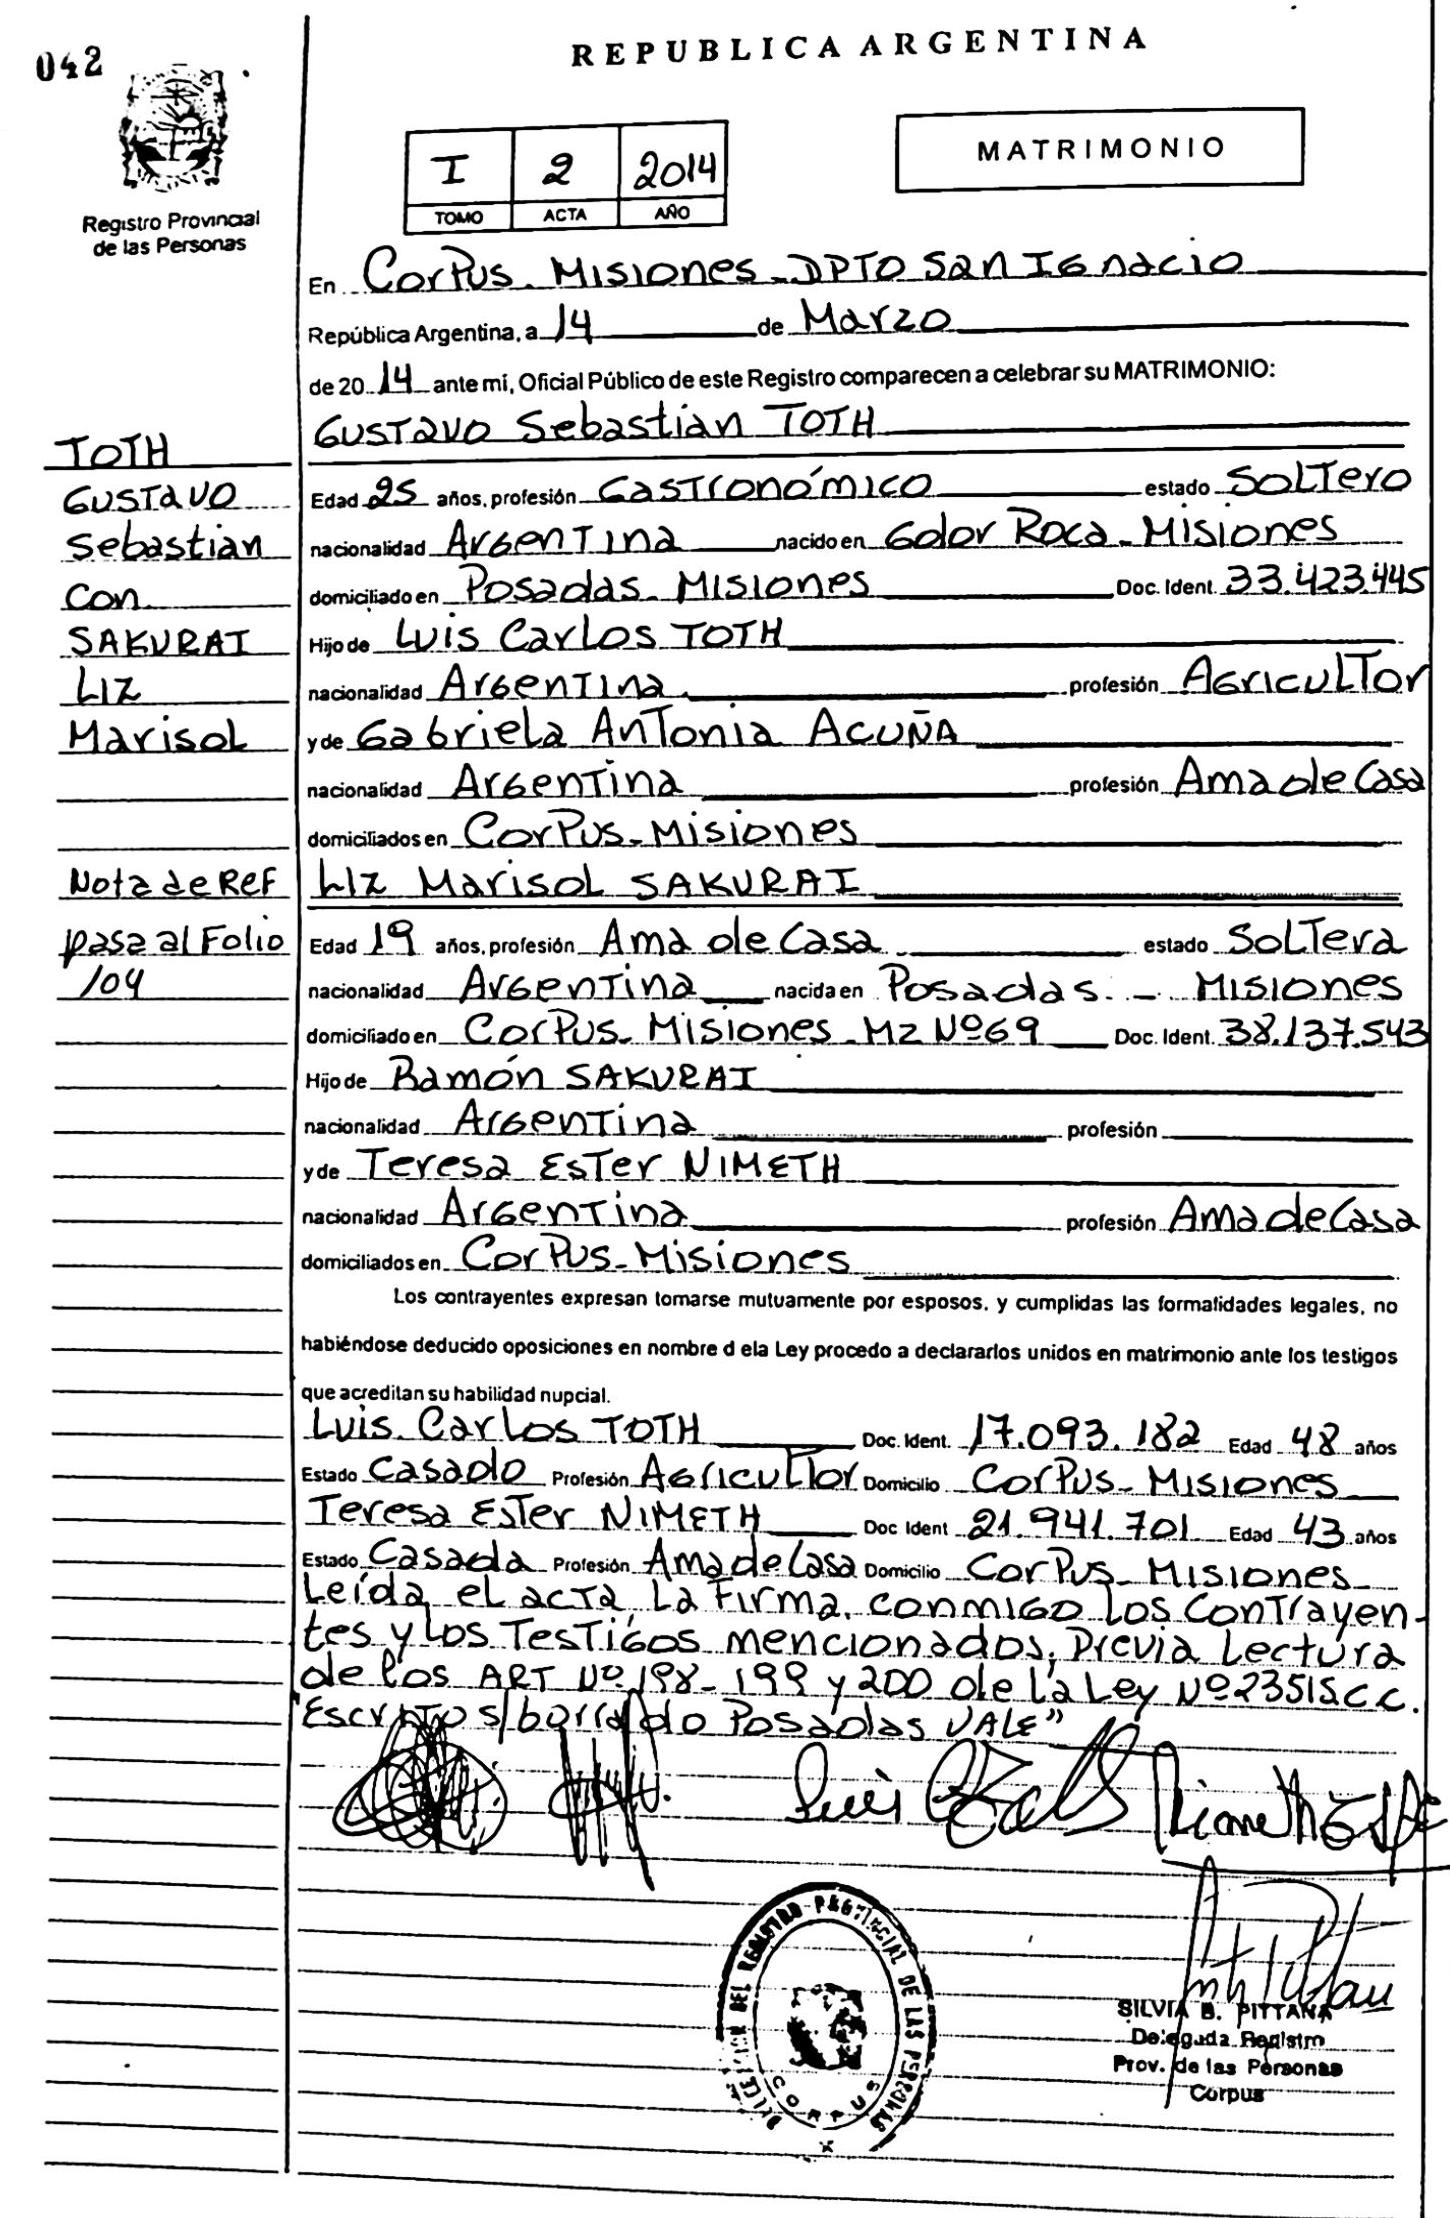 042
REPUBLICA ARGENTINA
Registro Provincial
de las Personas
I 2 2014
TOMO ACTA AÑO
MATRIMONIO
En Corpus. Misiones - DPTO San Ignacio
República Argentina, a 14 de Marzo
de 20 14 ante mí, Oficial Público de este Registro comparecen a celebrar su MATRIMONIO:
TOTH
Gustavo
Sebastian
Con
SAKURAI
Liz
Marisol
Nota de Ref
pasa al Folio
104
Gustavo Sebastian TOTH
Edad 25 años, profesión Gastronómico estado Soltero
nacionalidad Argentina nacido en Gdor Roca - Misiones
domiciliado en Posadas - Misiones Doc. Ident. 33.423.445
Hijo de Luis Carlos TOTH
nacionalidad Argentina profesión Agricultor
y de Gabriela Antonia ACUÑA
nacionalidad Argentina profesión Ama de Casa
domiciliados en Corpus - Misiones
Liz Marisol SAKURAI
Edad 19 años, profesión Ama de Casa estado Soltera
nacionalidad Argentina nacida en Posadas. - Misiones
domiciliado en Corpus - Misiones - Mz Nº 69 Doc. Ident. 38.137.543
Hijo de Ramón SAKURAI
nacionalidad Argentina profesión
y de Teresa Ester NIMETH
nacionalidad Argentina profesión Ama de Casa
domiciliados en Corpus - Misiones
Los contrayentes expresan tomarse mutuamente por esposos, y cumplidas las formalidades legales, no
habiéndose deducido oposiciones en nombre d ela Ley procedo a declararlos unidos en matrimonio ante los testigos
que acreditan su habilidad nupcial.
Luis Carlos TOTH Doc. Ident. 17.093.182 Edad 48 años
Estado Casado Profesión Agricultor Domicilio Corpus - Misiones
Teresa Ester NIMETH Doc Ident 21.941.701 Edad 43 años
Estado Casada Profesión Ama de Casa Domicilio Corpus - Misiones
Leída el acta la Firma, conmigo los Contrayen-
tes y los Testigos mencionados, Previa Lectura
de los ART Nº 198 - 199 y 200 de la Ley Nº 23515 C.C.
"Escrito s/borrado Posadas VALE"
DELEGACION DEL REGISTRO PROVINCIAL DE LAS PERSONAS
CORPUS
SILVIA B. PITTANA
Delegada Registro
Prov. de las Personas
Corpus